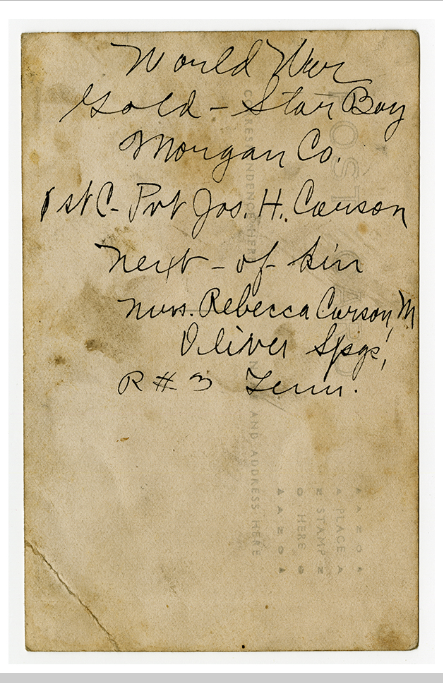 World War
Gold - Star Boy
Morgan Co.
1st C- Pvt Jos. H. Carson
Next - of - kin
Mrs. Rebecca Carson, M
Oliver Spgs,
R # 3 Tenn.
POST CARD
CORRESPONDENCE HERE
NAME AND ADDRESS HERE
AZO
PLACE
STAMP
HERE
AZO